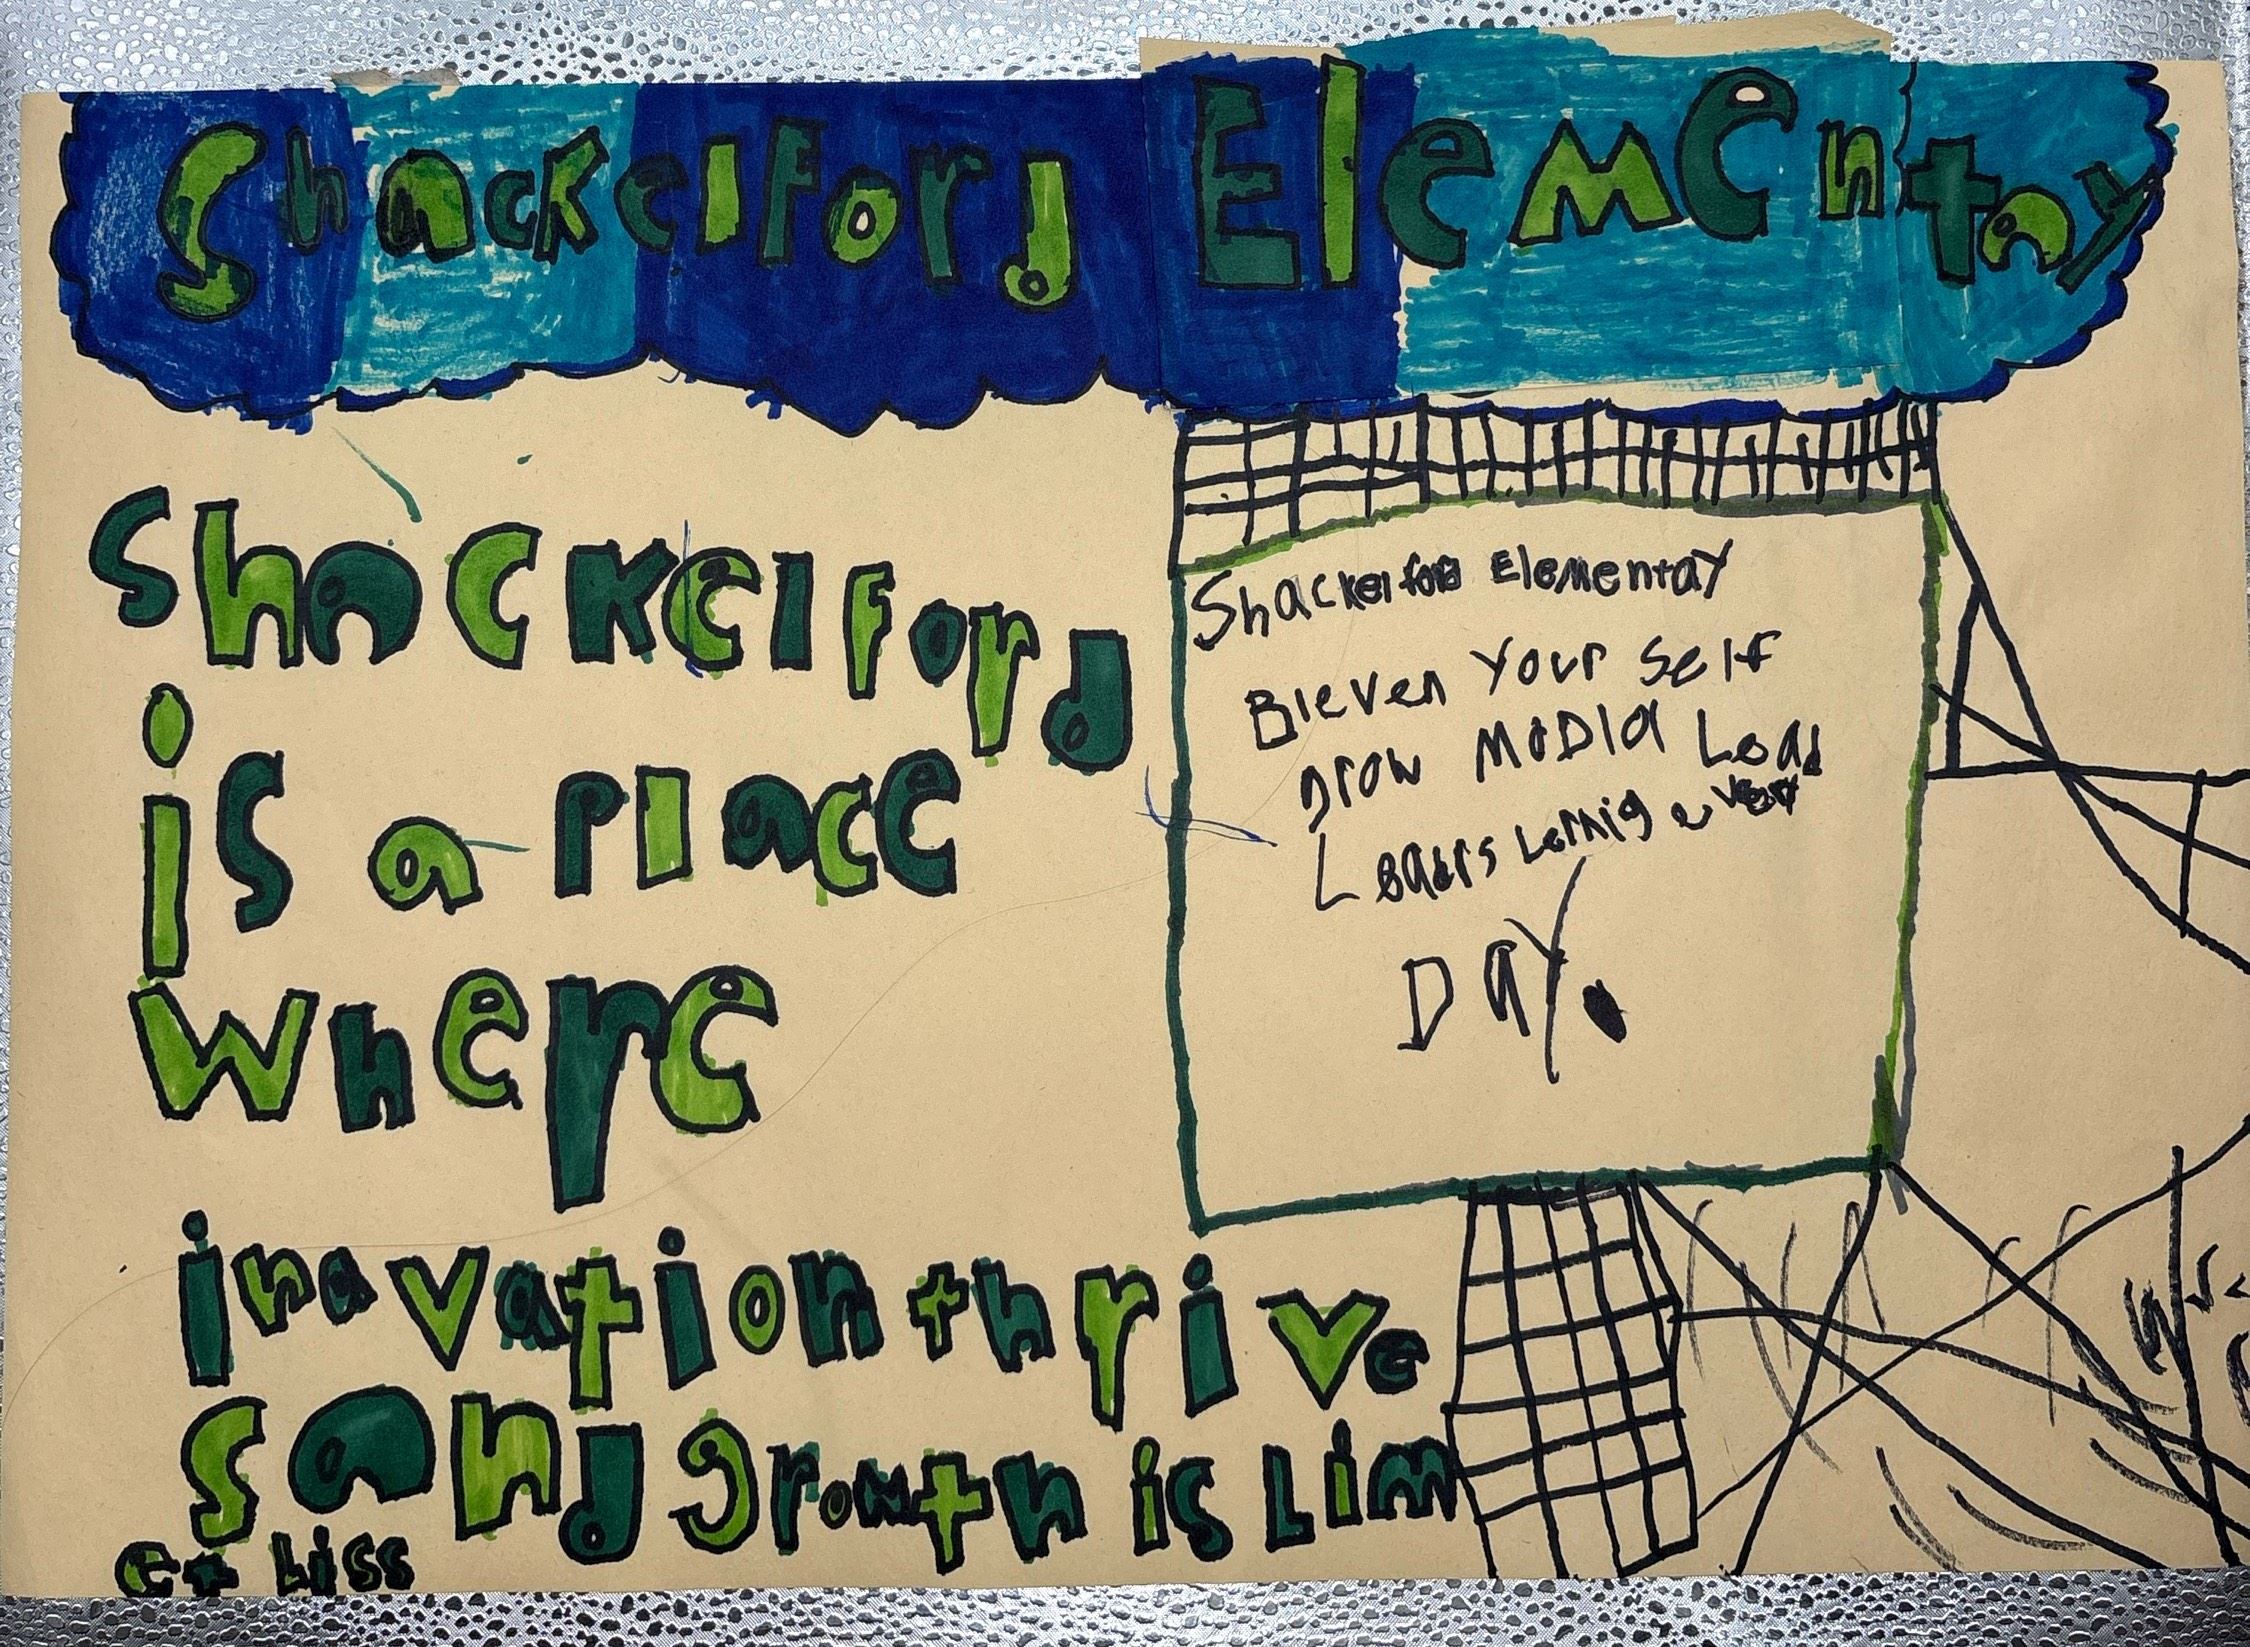 Shackelford Elementay
Shackelford
is a place
where
inavation thrive
s and growth is Lim
et Liss
Shackelford Elementay
Bleven Your Self
grow MoDla Lead
Leadrs Lernig every
DAY.